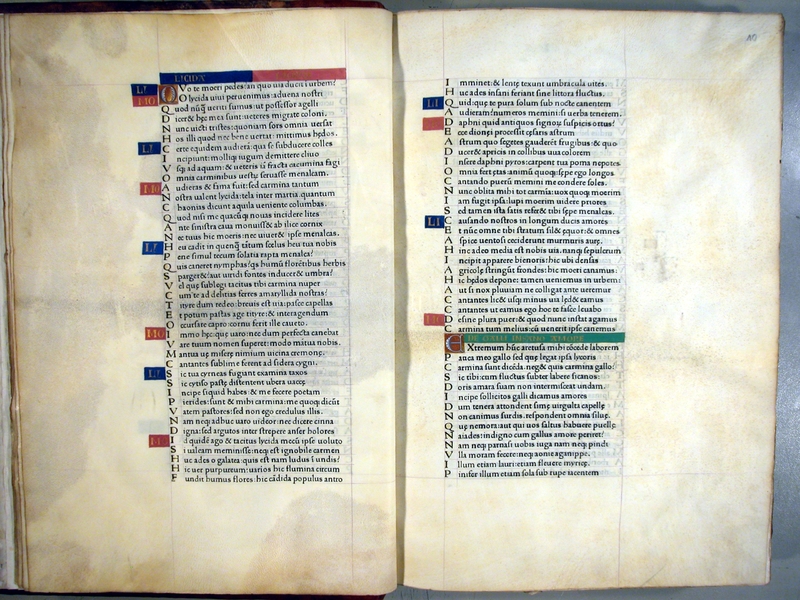 LICIDA
LI Quo te moeri pedes: an quo uia ducit i urbem?
MO O lycida uiui peruenimus: aduena nostri
Quod nũq̃ ueriti sumus: ut possessor agelli
Diceret: hęc mea sunt: ueteres migrate coloni.
Nunc uicti tristes: quoniam sors omnia uersat
Hos illi quod nec bene uertat: mittimus hędos.
LI Certe equidem audierã: qua se subducere colles
Incipiunt: molliq; iugum demittere cliuo
Vsq; ad aquam: & ueteris iã fracta cacumina fagi
Omnia carminibus uestrũ seruasse menalcam.
MO Audieras & fama fuit: sed carmina tantum
Nostra ualent lycida: tela inter martia quantum
Chaonias dicunt aquila ueniente columbas.
Quod nisi me quacũq; nouas incidere lites
Ante sinistra caua monuisset ab ilice cornix
Nec tuus hic moeris: nec uiueret ipse menalcas.
LI Heu cadit in quenq̃ tãtum scelus heu tua nobis
Pene simul tecum solatia rapta menalca?
Quis caneret nymphas? q̃s humũ florẽtibus herbis
Spargeret? aut uiridi fontes induceret umbra?
Vel quę sublegi tacitus tibi carmina nuper
Cum te ad delitias ferres amaryllida nostras?
Tityre dum redeo: breuis est uia: pasce capellas
Et potum pastas age tityre: & interagendum
Occursare capro: cornu ferit ille caueto.
MO Immo hęc: quę uaro: nec dum perfecta canebat
Vare tuum nomen superet: modo mãtua nobis.
Mantua uę miserę nimium uicina cremonę.
Cantantes sublime ferent ad sidera cygni.
LI Sic tua cyrneas fugiant examina taxos
Sic cytiso pastę distentent ubera uaccę
Incipe siquid habes: & me fecere poetam
Pierides: sunt & mihi carmina: me quoq; dicũt
Vatem pastores: sed non ego credulus illis.
Nam neq; adhuc uaro uideor: nec dicere cinna
Digna: sed argutos inter strepere anser holores
MO Id quidẽ ago & tacitus lycida mecũ ipse uoluto
Si ualeam meminisse: neq; est ignobile carmen
Huc ades o galatea: quis est nam ludus ĩ undis?
Hic uer purpureum: uarios hic flumina circum
Fundit humus flores: hic cãdida populus antro
Imminet: & lentę texunt umbracula uites.
Huc ades insani feriant sine littora fluctus.
LI Quid: quę te pura solum sub nocte canentem
Audieram? numeros memini: si uerba tenerem.
Daphni quid antiquos signoꝝ suspicis ortus?
Ecce dionęi processit cęsaris astrum
Astrum quo segetes gauderẽt frugibus: & quo
Duceret apricis in collibus uua colorem
Insere daphni pyros: carpent tua poma nepotes
Omnia fert ętas: animũ quoq; : sępe ego longos
Cantando puerũ memini me condere soles.
Nunc oblita mihi tot carmĩa: uox quoq; moerim
Iam fugit ipsa: lupi moerim uidere priores
Sed tamen ista satis referẽt tibi sępe menalcas.
LI Causando nostros in longum ducis amores
Et nũc omne tibi stratum silet ęquor: & omnes
Aspice uentosi ceciderunt murmuris aurę.
Hinc adeo media est nobis uia. nanq; sepulcrum
Incipit apparere bienoris: hic ubi densas
Agricolę stringũt frondes: hic moeri canamus:
Hic hędos depone: tamen ueniemus in urbem:
Aut si nox pluuiam ne colligat ante ueremur
Cantantes licet usq; minus uia lędet eamus
Cantantes ut eamus ego hoc te fasce leuabo
MO Desine plura puer: & quod nunc instat agamus
Carmina tum melius: cũ uenerit ipse canemus
Extremum hũc aretusa mihi cõcede laborem
Pauca meo gallo sed quę legat ipsa lycoris
Carmina sunt dicẽda. neg& quis carmina gallo:
Sic tibi: cum fluctus subter labere sicanos:
Doris amara suam non intermisceat undam.
Incipe sollicitos galli dicamus amores
Dum tenera attondent simę uirgulta capellę
Non canimus surdis. respondent omnia siluę.
Quę nemora: aut qui uos saltus habuere puellę
Naiades: indigno cum gallus amore periret?
Nam neq; parnasi uobis iuga nam neq; pindi
Vlla moram fecere: neq; aonie aganippe.
Illum etiam lauri: etiam fleuere myricę.
Pinifer illum etiam sola sub rupe iacentem